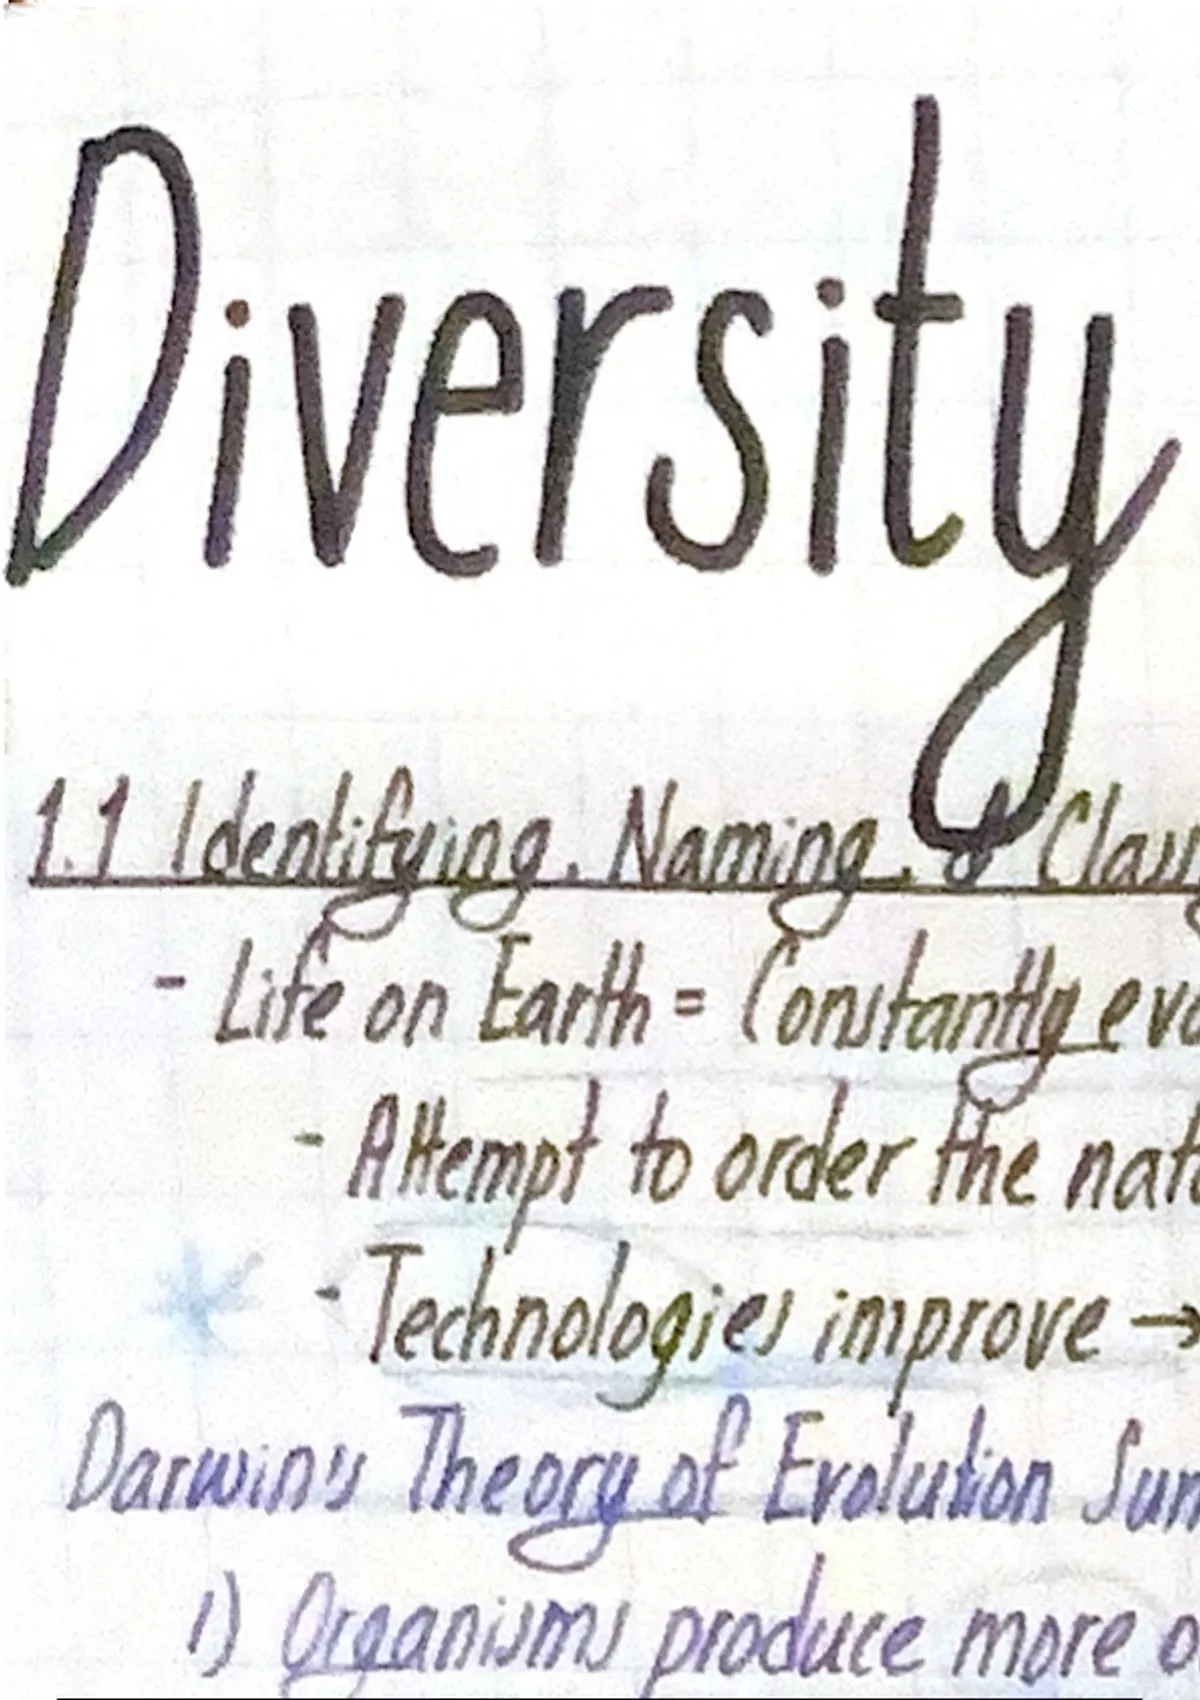 Diversity
1.1 Identifying, Naming, & Class
- Life on Earth = Constantly evo
- Attempt to order the nat
- Technologies improve →
Darwin's Theory of Evolution Sum
1) Organisms produce more o